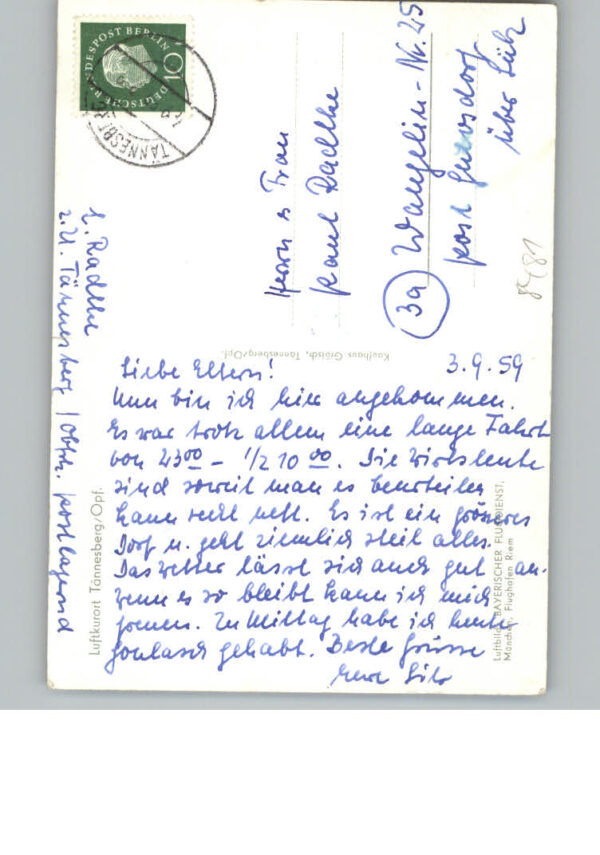 DEUTSCHE BUNDESPOST BERLIN
10
TÄNNESBERG
Herrn u Frau
Paul Radthe
(3a) Wangelin-Nr. 25
post
über Lübz
8481
L. Radthe
z. Zt. Tännesberg/Obpf. postlagernd
Kaufhaus Grötsch, Tännesberg/Opf.
Luftkurort Tännesberg/Opf.
Luftbild: BAYERISCHER FLUGDIENST,
München, Flughafen Riem
3.9.59
Liebe Eltern!
Nun bin ich hier angekommen.
Es war trotz allem eine lange Fahrt
von 23 00 – 1/2 10 00. Die Wirtsleute
sind soweit man es beurteilen
kann recht nett. Es ist ein grösseres
Dorf u. geht ziemlich steil alles.
Das Wetter lässt sich auch gut an-
wenn es so bleibt kann ich mich
freuen. Zu Mittag habe ich heute
Goulasch gehabt. Beste Grüsse
Eure